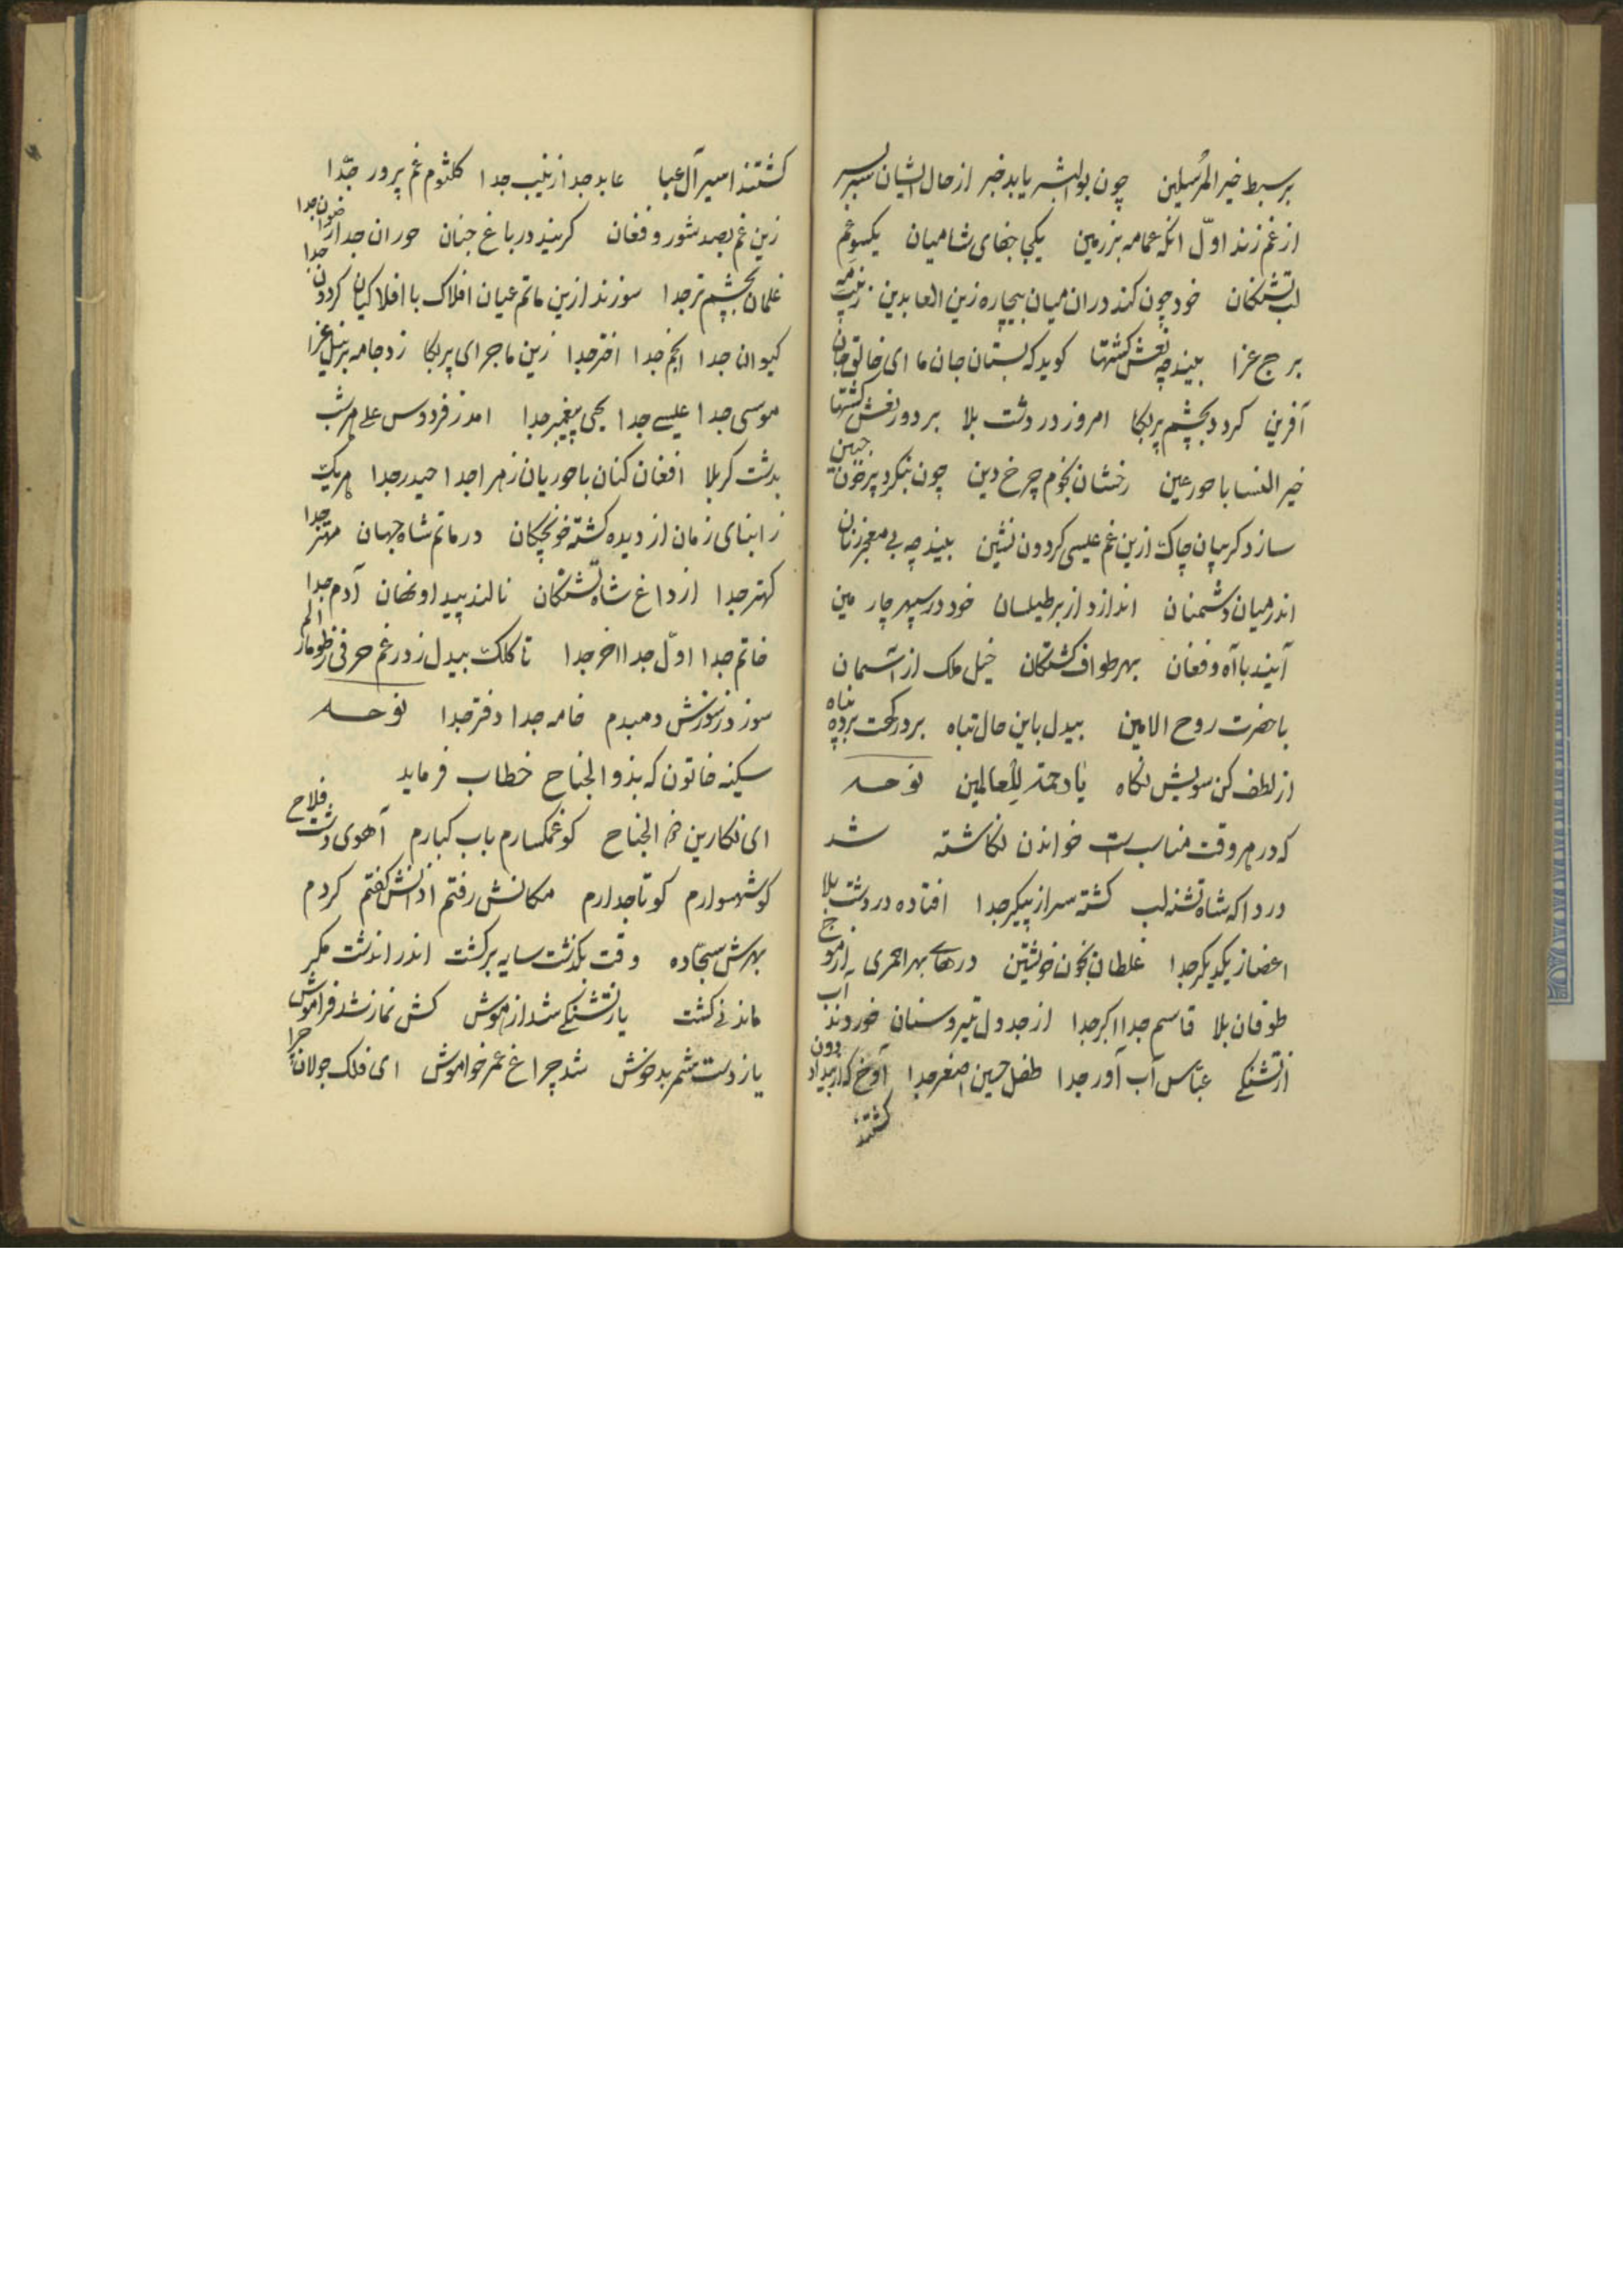 بر سبط خیر المرسلین چون بوالبشر یابد خبر از حال ایشان سر بسر
از غم زند اول انکه عمامه بر زمین یکجا جفای شامیان یکسو غم
لب تشنکان خود چون کند در ان میان بیچاره زین العابدین زینب مه
برج عزا بیند چه نعش کشتها کوید که بستان جان ما ای خالق جان
آفرین کردد بچشم پر بکا امروز در دشت بلا بر دور نعش کشتها
خیر النسا با حور عین رخشان نجوم چرخ دین چون بنکرد پر خون جبین
سازد کریبان چاک ازین غم عیسی کردون نشین بیند چه بی معجر زنان
اندر میان دشمنان اندازد از بر طیلسان خود در سپهر چارمین
آیند با آه و فغان بهر طواف کشتکان خیل ملک از آسمان
با حضرت روح الامین بیدل باین حال تباه بر درکهت برده پناه
از لطف کن سویش نکاه یا رحمة للعالمین نوحه
که در هر وقت مناسبست خواندن نکاشته شد
دردا که شاه تشنه لب کشته سر از پیکر جدا افتاده در دشت بلا
اعضا ز یکدیکر جدا غلطان بخون خویشتن درهای بهر احمری از موج
طوفان بلا قاسم جدا اکبر جدا از جدول تیر و سنان خوردند آب
از تشنکی عباس آب آور جدا طفل حسین اصغر جدا آوخ که از بیداد دون
کشتند
کشتند اسیر آل عبا عابد جدا زینب جدا کلثوم غم پرور جدا
زین غم بصد شور و فغان کریند در باغ جنان حوران جدا رضوان جدا
غلمان بچشم تر جدا سوزند ازین ماتم عیان افلاک با افلاکیان کردون جدا
کیوان جدا انجم جدا اختر جدا زین ماجرای پر بکا زد جامه بر نیل عزا
موسی جدا عیسے جدا یحیی پیغمبر جدا امد ز فردوس علے هر شب
بدشت کربلا افغان کنان با حوریان زهرا جدا حیدر جدا هر یک
ز ابنای زمان از دیده کشته خونچکان در ماتم شاه جهان مهتر جدا
کهتر جدا از داغ شاه تشنکان نالند پیدا و نهان آدم جدا
خاتم جدا اول جدا اخر جدا تا کلک بیدل زد رغم حرفی ز طومار الم
سوزد ز سوزش دمبدم خامه جدا دفتر جدا نوحه
سکینه خاتون که بذو الجناح خطاب فرماید
ای نکارین ذو الجناح کو غمکسارم باب کبارم آهوی دشت فلاح
کو شهسوارم کو تاجدارم مکانش رفتم اذانش کفتم کردم
بهرش سجاده وقت بکذشت سایه برکشت اندر اندشت مکر
ماندنی کشت یا ز تشنکی شد از هوش کش نماز شد فراموش
یا ز دست شمر بدخوش شد چراغ عمر خواموش ای فلک جولان چرا